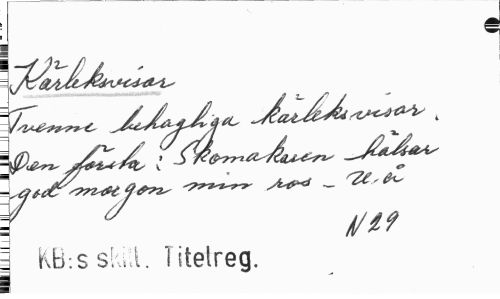 Kärleksvisor
Tvenne behagliga kärleksvisor.
Den första: Skomakaren hälsar
god morgon min ros - U.å
N 29
KB:s skill. Titelreg.